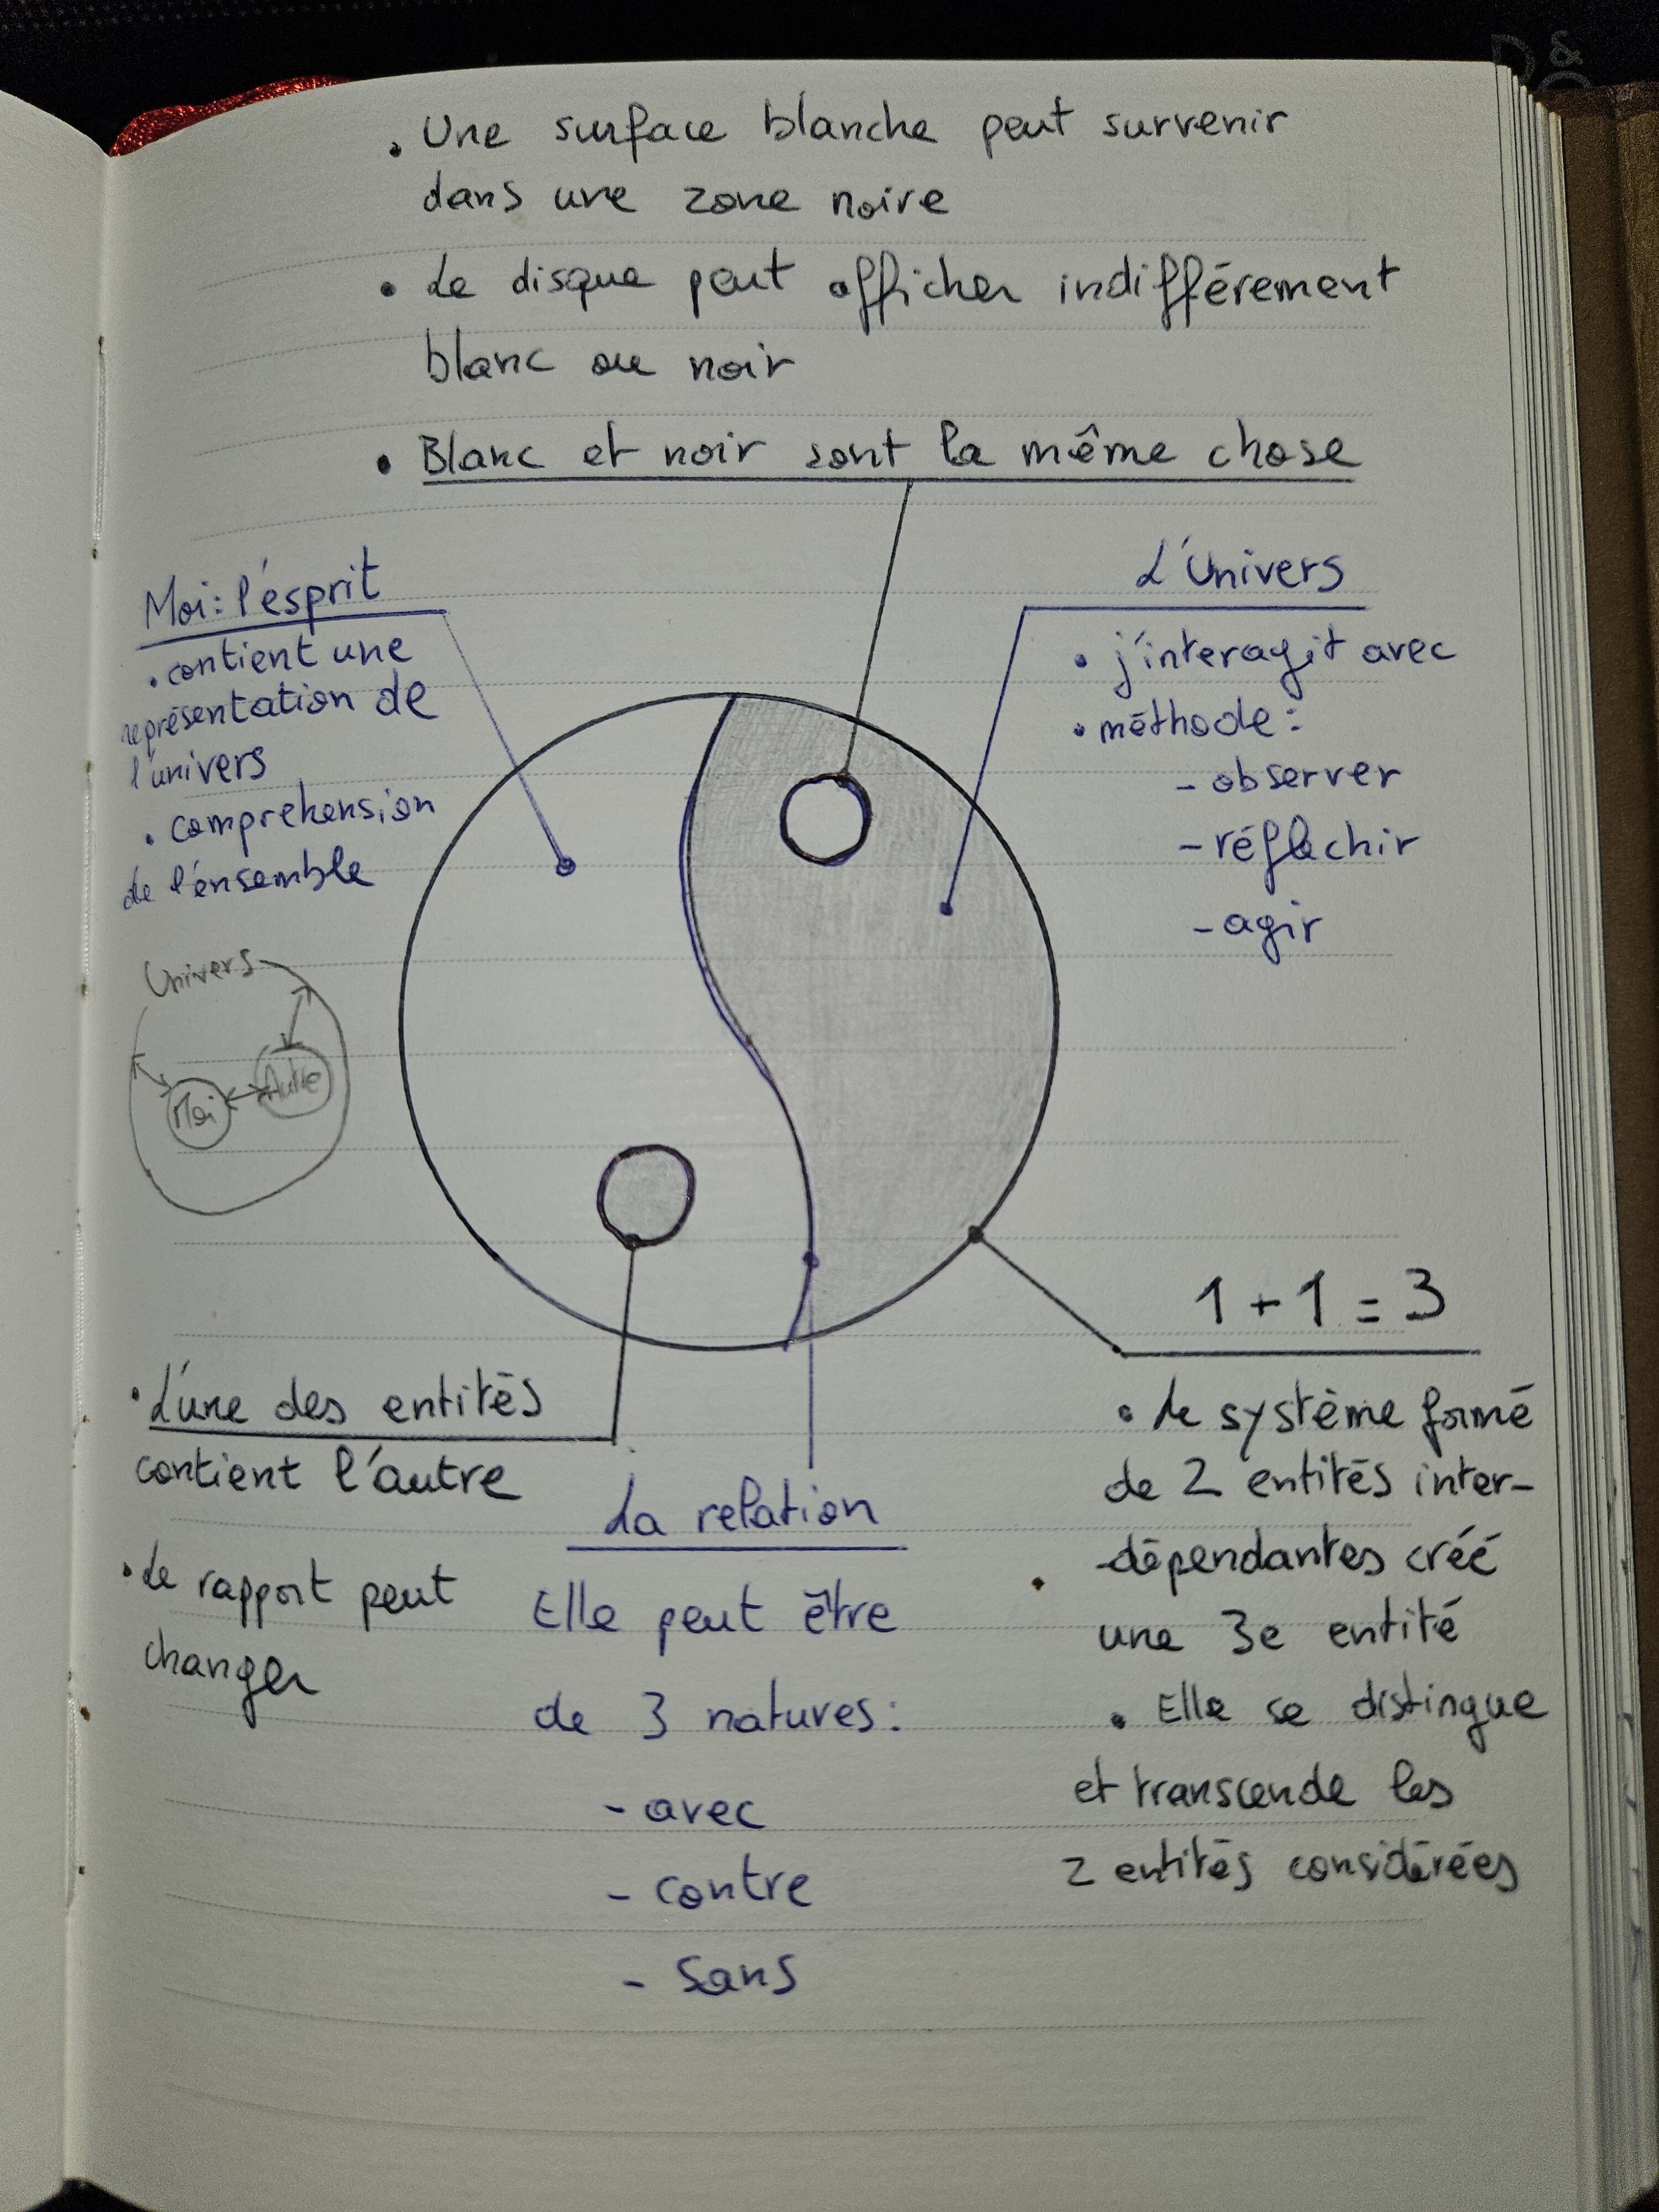 . Une surface blanche peut survenir
dans une zone noire
• Le disque peut afficher indifférement
blanc ou noir
• Blanc et noir sont la même chose
Moi: l'ésprit
. contient une
représentation de
l'univers
. comprehension
de l'énsemble
L'Univers
• j'interagit avec
• méthode:
- observer
- réflechir
- agir
Univers
Moi
Autre
1 + 1 = 3
• Le système formé
de 2 entités inter-
-dépendantes créé
une 3e entité
• Elle se distingue
et transcende les
2 entités considérées
• L'une des entités
contient l'autre
• Le rapport peut
changer
La relation
Elle peut être
de 3 natures:
- avec
- contre
- Sans